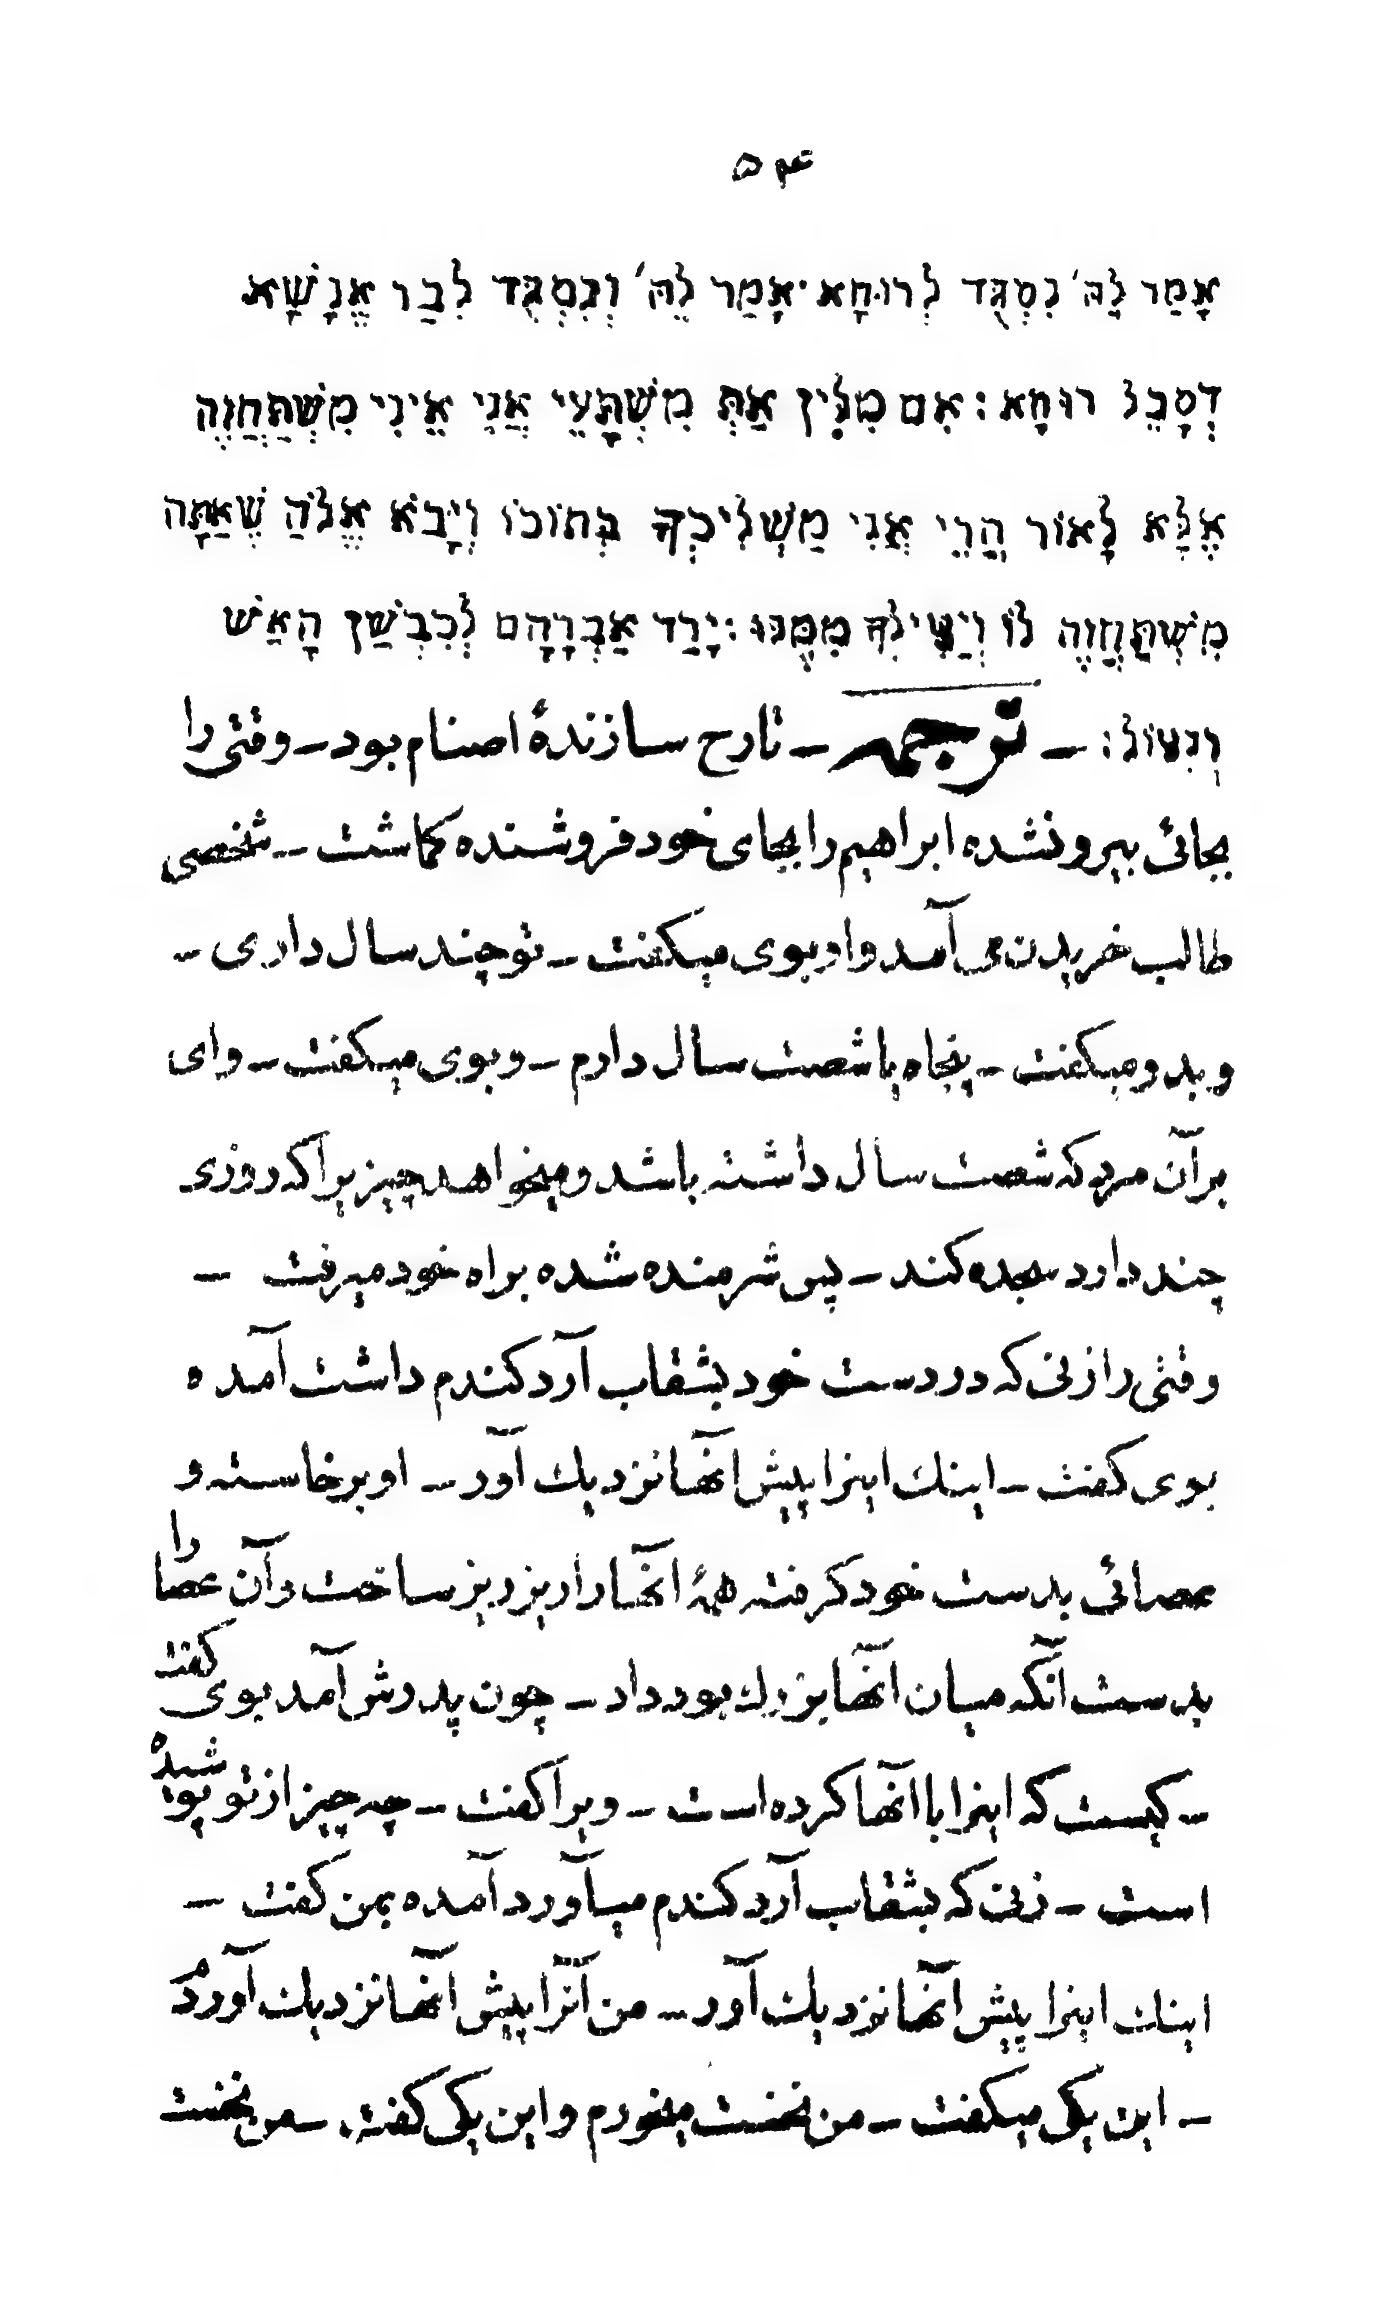 ۵۴
אָמַר לָהּ' נִסְגֻּד לְרוּחָא · אָמַר לֵהּ' וְנִסְגֻּד לְבַר אֱנָשָׁא
דְסָבֵל רוּחָא : אִם מִלִּין אַתְּ מִשְׁתָּעֵי אֲנִי אֵינִי מִשְׁתַּחֲוֶה
אֶלָּא לָאוֹר הֲרֵי אֲנִי מַשְׁלִיכְךָ בְּתוֹכוֹ וְיָבֹא אֱלֹהַ שֶׁאַתָּה
מִשְׁתַּחֲוֶה לוֹ וְיַצִּילְךָ מִמֶּנּוּ : יָרַד אַבְרָהָם לְכִבְשַׁן הָאֵשׁ
וְנִצּוֹל : — ترجمه — تارح سازندهٔ اصنام بود — وقتی را
بجائی بیرونشده ابراهیم را بجای خود فروشنده کماشت — شخصی
طالب خریدن می آمد و او بوی میکفت — تو چند سال داری —
و بدو میکفت — پنجاه یا شصت سال دارم — و بوی میکفت — وای
بر آن مرد که شصت سال داشته باشد و میخواهد چیزیرا که روزی
چند دارد سجده کند — پس شرمنده شده براه خود میرفت —
وقتی را زنی که در دست خود بشقاب آرد کندم داشت آمده
بوی کفت — اینك اینرا پیش آنها نزدیك آور — او برخاسته و
عصائی بدست خود کرفته همهٔ آنها را ریز ریز ساخت و آن عصا را
بدست آنکه میان آنها بزرك بود داد — چون پدرش آمد بوی کفت
— کیست که اینرا با آنها کرده است — ویرا کفت — چه چیز از تو پوشیده
است — زنی که بشقاب آرد کندم میآورد آمده بمن کفت —
اینك اینرا پیش آنها نزدیك آور — من آنرا پیش آنها نزدیك آوردم
— این یکی میکفت — من نخست میخورم و این یکی کفته — من نخست